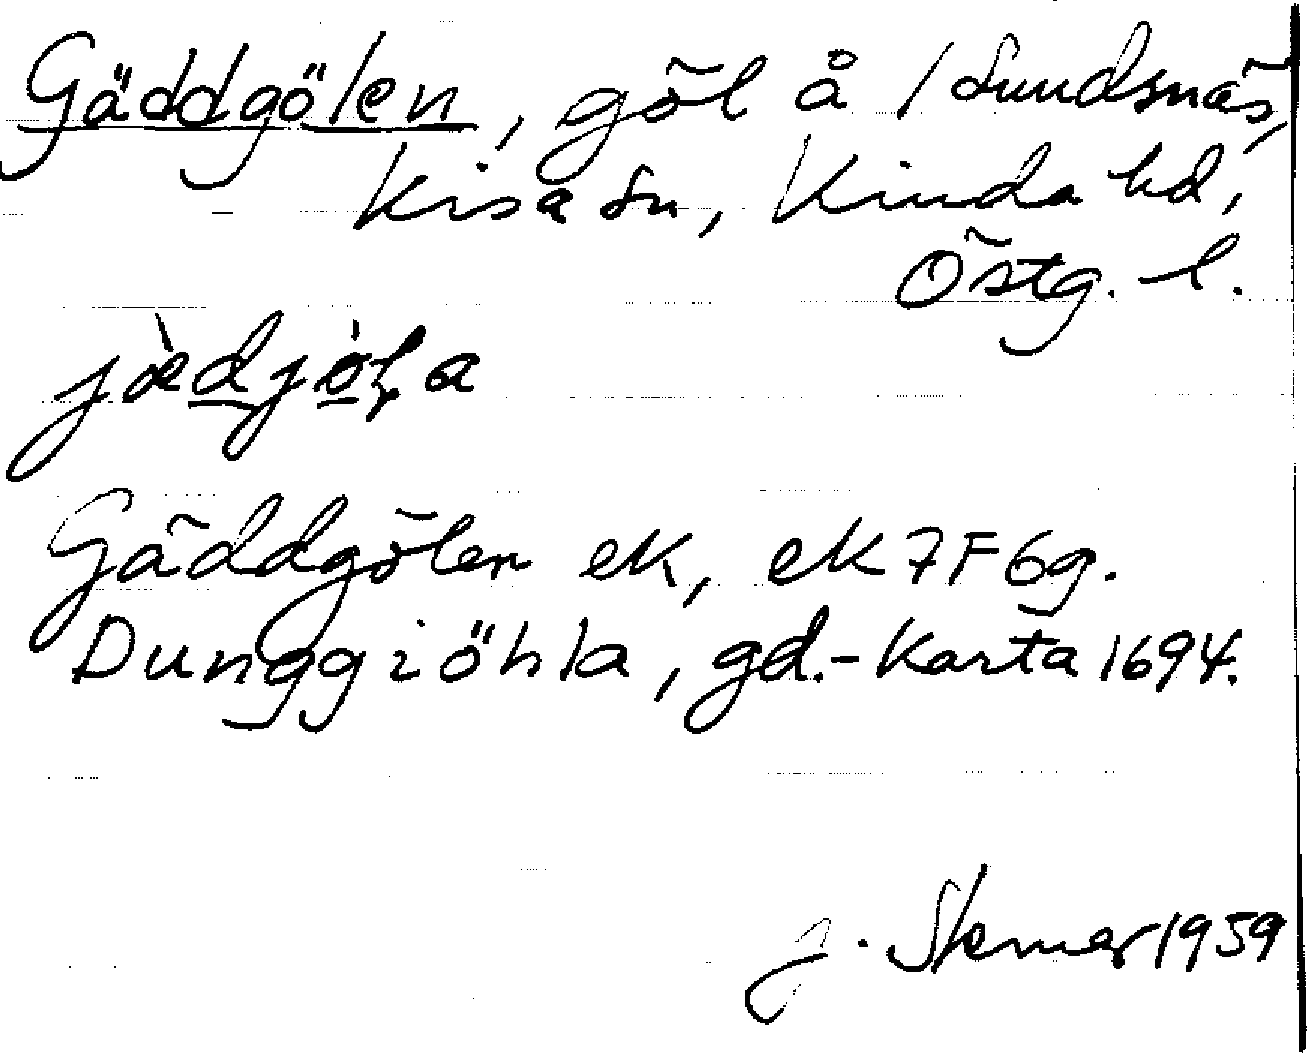 Gäddgölen, göl å / Sundsnäs,
Kisa sn, Kinda hd,
Östg. l.
jæ̀djöla
Gäddgölen ek, ek 7F6g.
Dunggiöhla, gd.-Karta 1694.
J. 1959